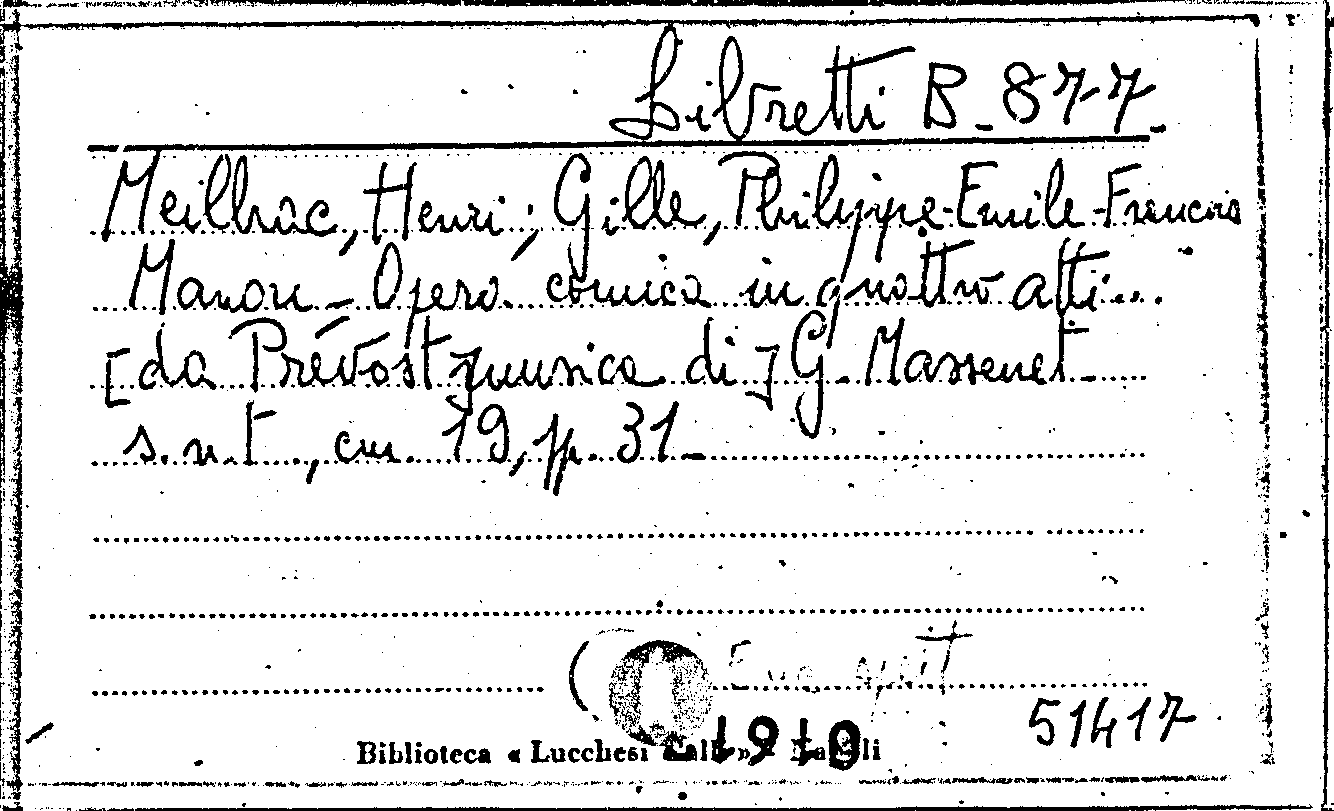 Libretti B-877-
Meilhac, Henri; Gille, Philippe-Emile-François
Manon - Opera comica in quattro atti...
[da Prévost; musica di] G. Massenet-
s.n.t., cm. 19, pp. 31-
51417
1910
Biblioteca « Lucchesi